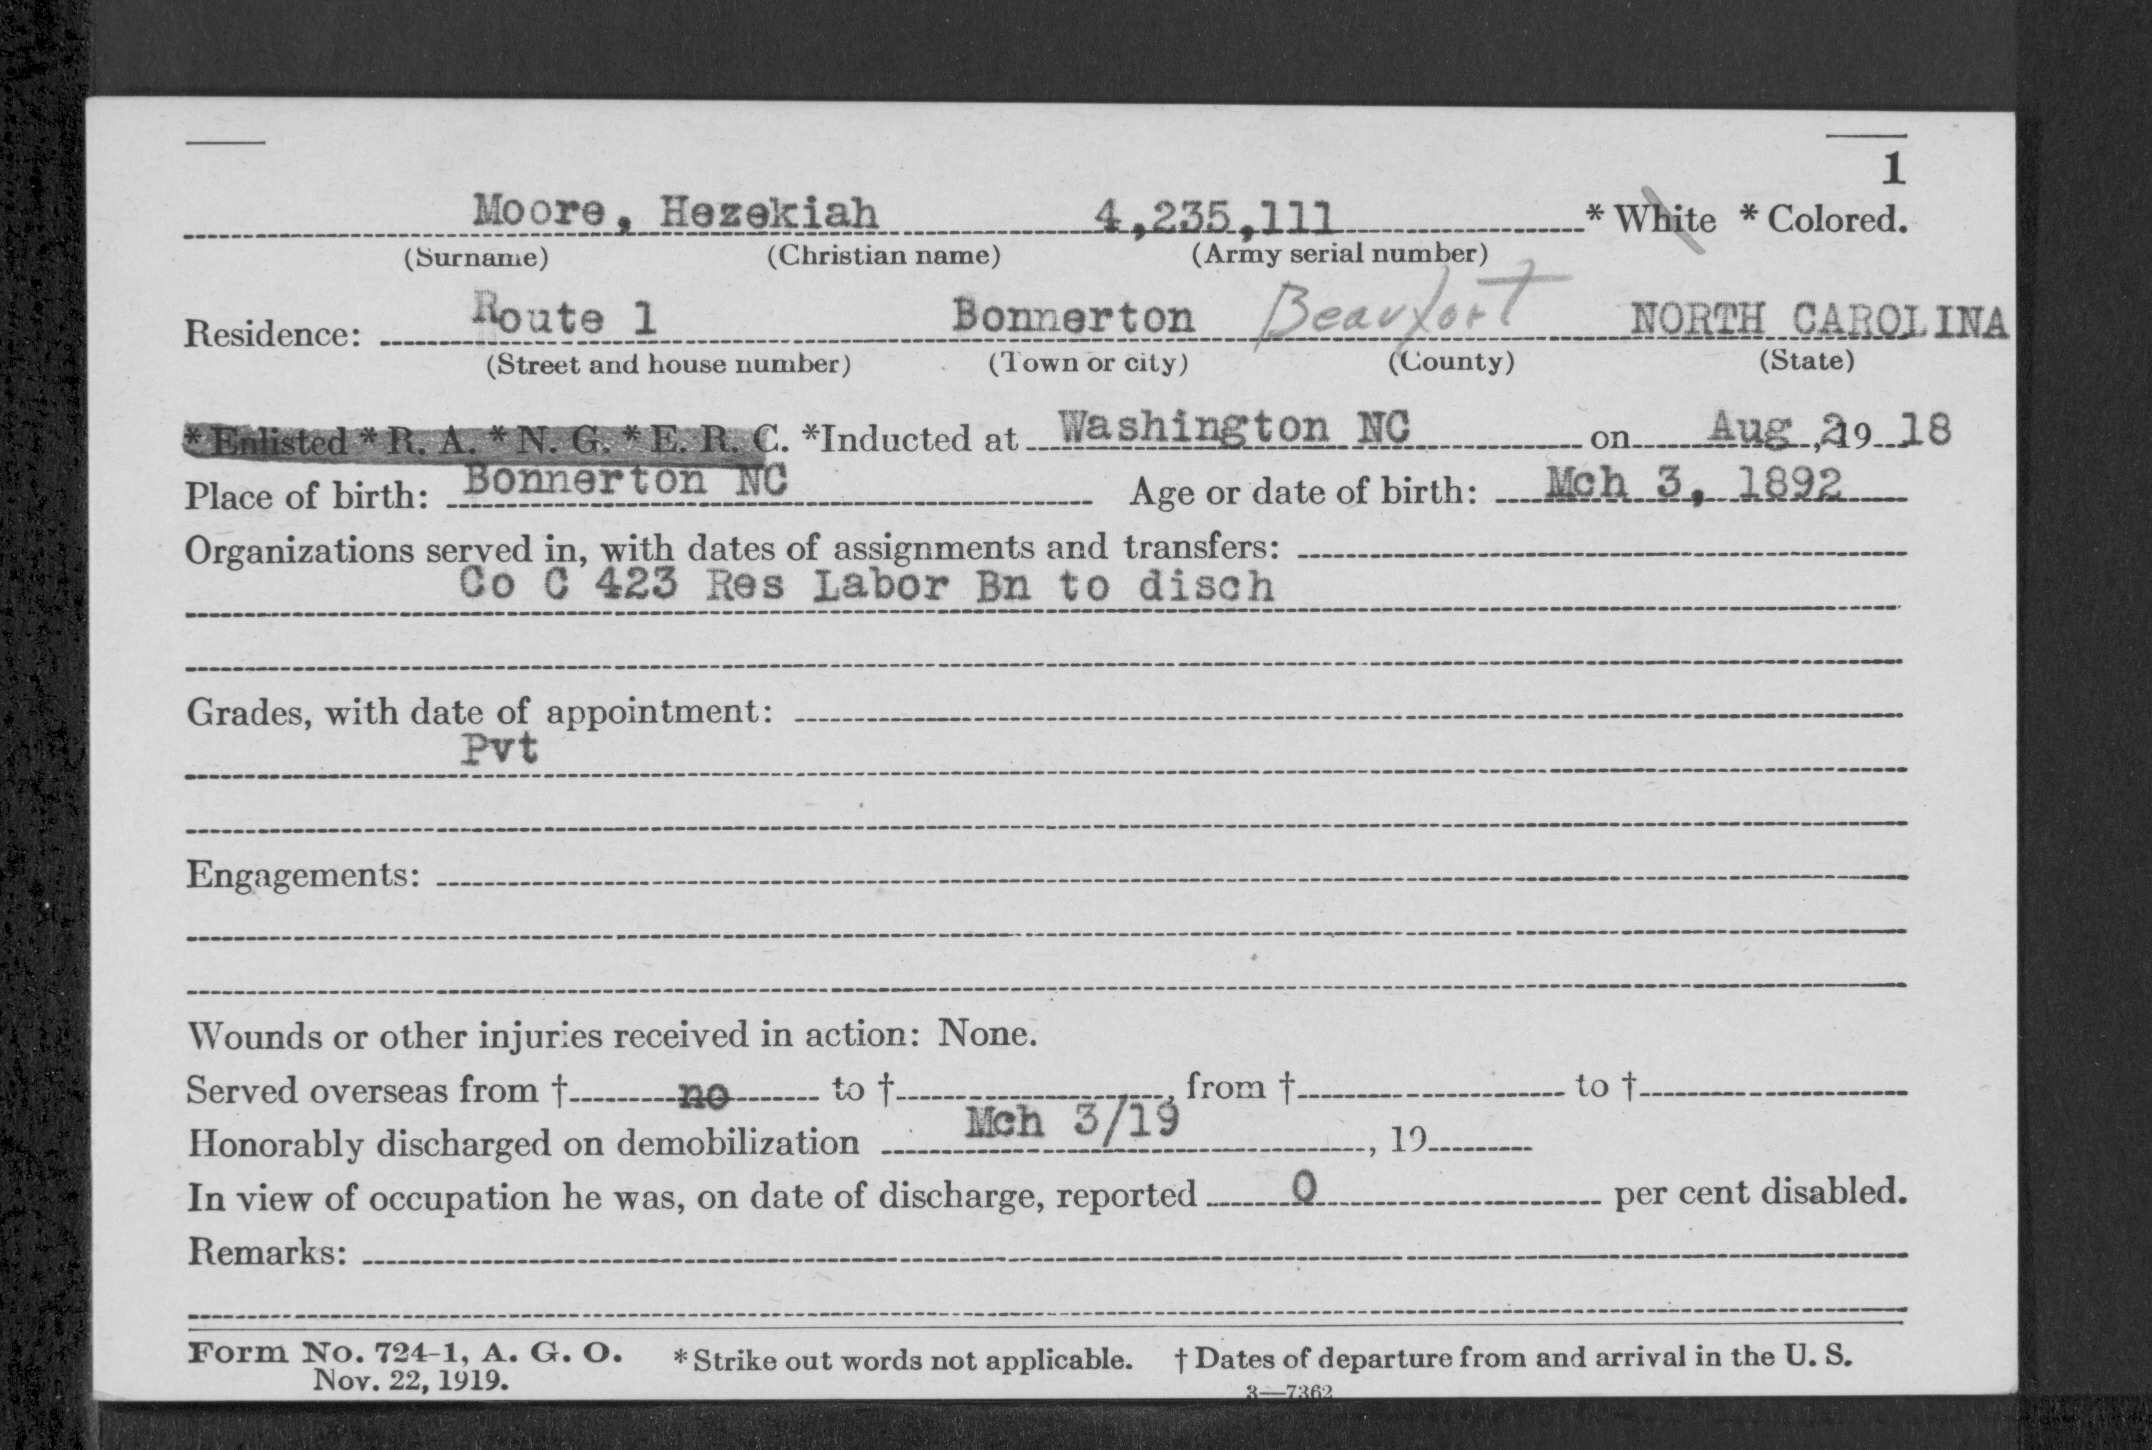 1
Moore, Hezekiah 4,235,111 * White * Colored.
(Surname) (Christian name) (Army serial number)
Residence: Route 1 Bonnerton Beaufort NORTH CAROLINA
(Street and house number) (Town or city) (County) (State)
* Enlisted * R. A. * N. G. * E. R. C. *Inducted at Washington NC on Aug 2, 19 18
Place of birth: Bonnerton NC Age or date of birth: Mch 3, 1892
Organizations served in, with dates of assignments and transfers:
Co C 423 Res Labor Bn to disch
Grades, with date of appointment:
Pvt
Engagements:
Wounds or other injuries received in action: None.
Served overseas from † no to †, from † to †
Honorably discharged on demobilization Mch 3/19, 19
In view of occupation he was, on date of discharge, reported 0 per cent disabled.
Remarks:
Form No. 724-1, A. G. O. * Strike out words not applicable. † Dates of departure from and arrival in the U. S.
Nov. 22, 1919. 3—7362